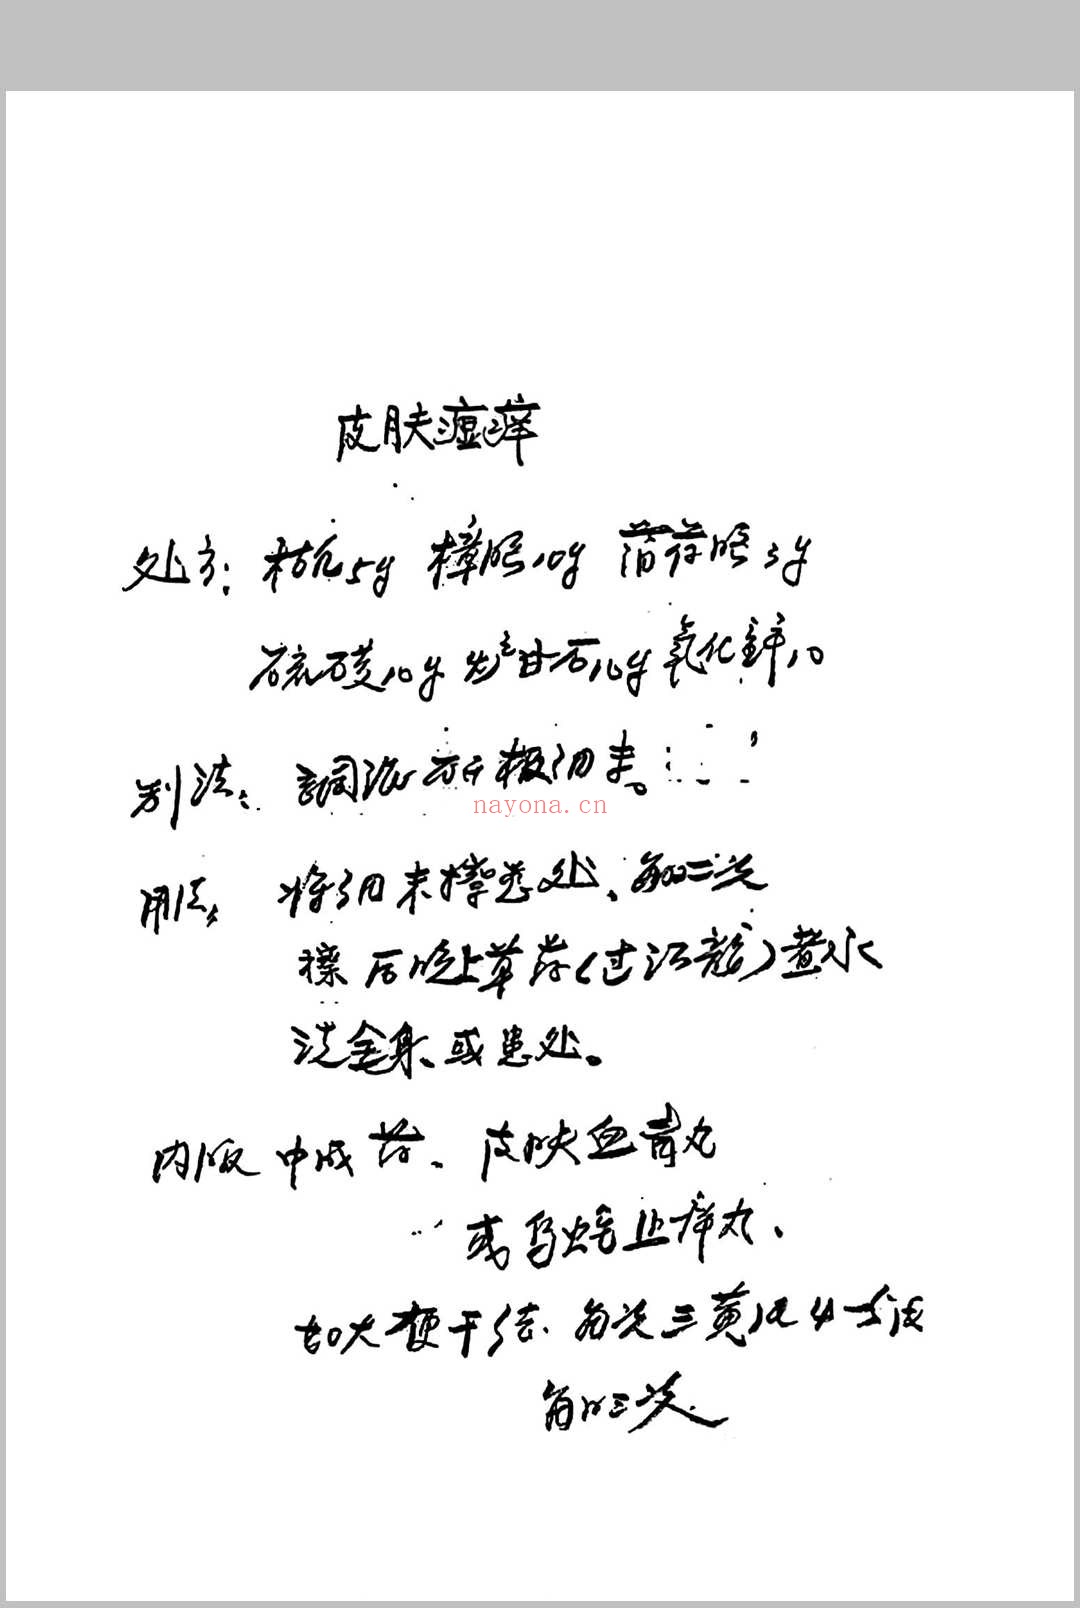 皮肤瘙痒
处方: 枯矾5g 樟脑10g 薄荷脑3g
硫磺10g 炉甘石10g 氧化锌10
制法: 研极细末。
nayona.cn
用法, 将细末擦患处、每日二次
擦后晚上草药(过江龙)煮水
洗全身、或患处。
内服 中成药、皮肤血毒丸
或乌蛇止痒丸、
如大便干结、每次三黄片4
每日三次